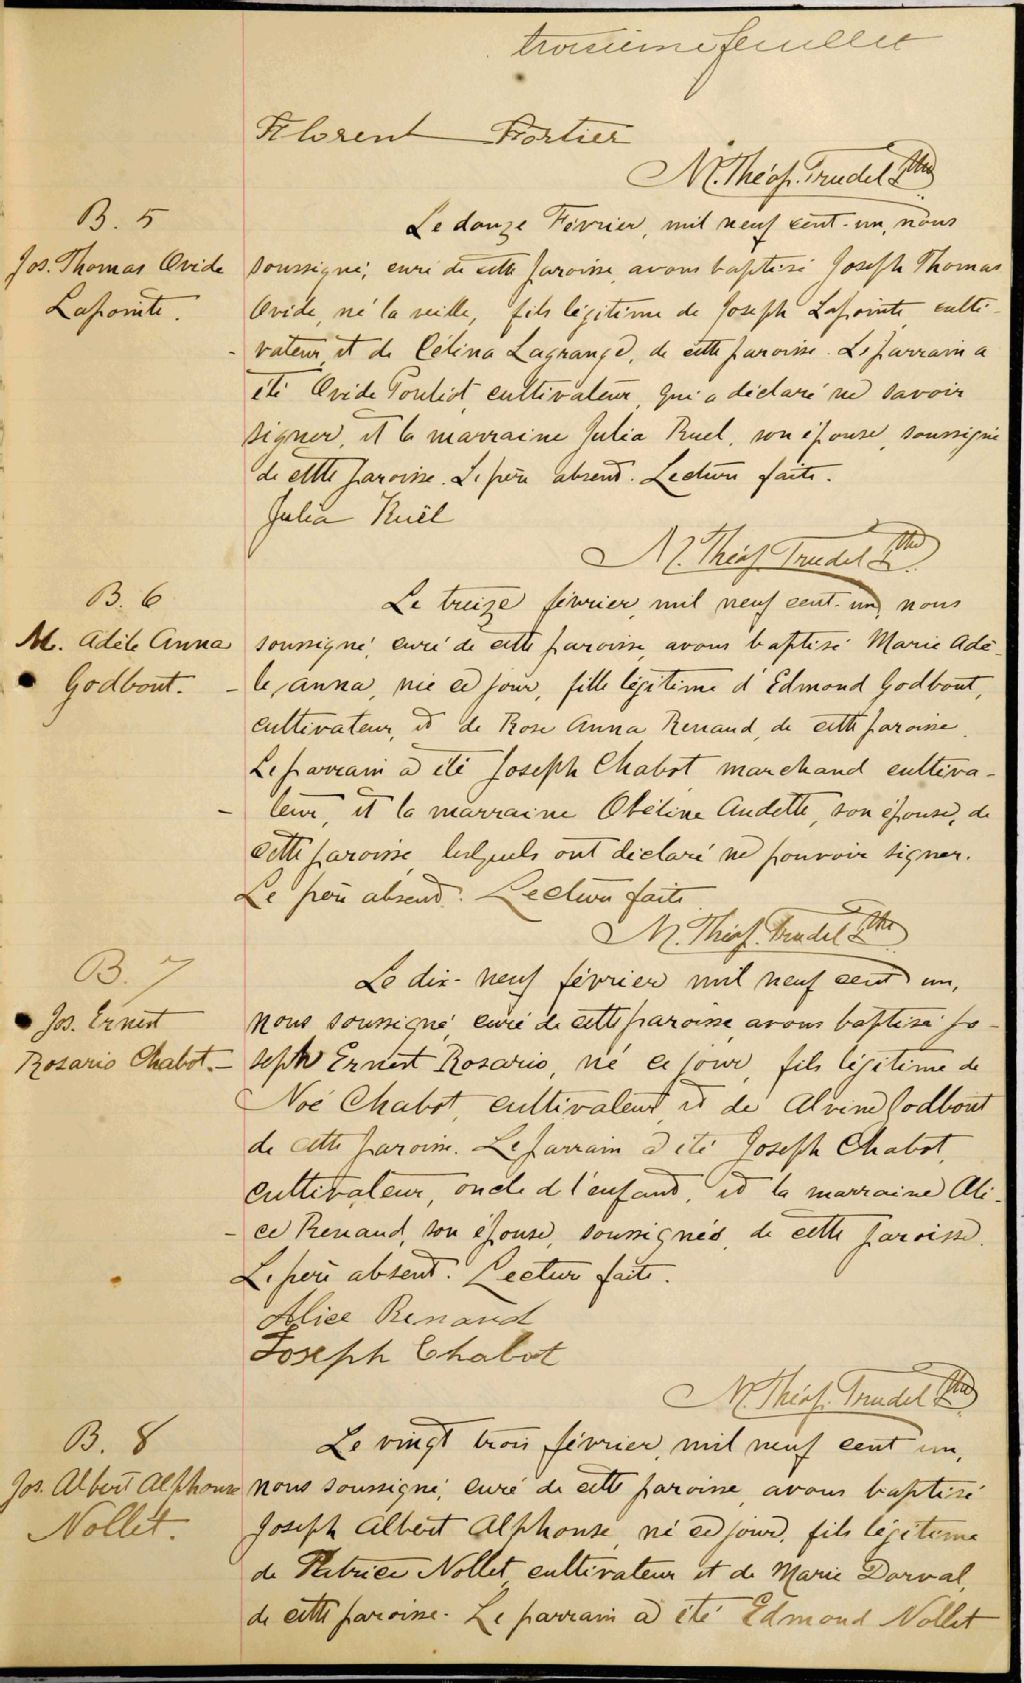 troisième feuillet
Florent Fortier
M. Théop. Trudel Ptre
B. 5
Jos. Thomas Ovide
Lapointe.
Le douze Février, mil neuf cent-un, nous
soussigné, curé de cette paroisse, avons baptisé Joseph Thomas
Ovide, né la veille, fils légitime de Joseph Lapointe, culti-
vateur, et de Célina Lagrange, de cette paroisse. Le parrain a
été Ovide Pouliot, cultivateur, qui a déclaré ne savoir
signer, et la marraine Julia Ruel, son épouse, soussigné
de cette paroisse. Le père absent. Lecture faite.
Julia Ruël
M. Théop. Trudel Ptre
B. 6
M. Adèle Anna
Godbout.
Le treize février, mil neuf cent-un, nous
soussigné, curé de cette paroisse, avons baptisé Marie Adè-
le, Anna, née ce jour, fille légitime d'Edmond Godbout,
cultivateur, et de Rose Anna Renaud, de cette paroisse.
Le parrain a été Joseph Chabot marchand cultiva-
teur, et la marraine Obéline Audette, son épouse, de
cette paroisse, lesquels ont déclaré ne pouvoir signer.
Le père absent. Lecture faite
M. Théop. Trudel Ptre
B. 7
Jos. Ernest
Rosario Chabot.
Le dix-neuf février mil neuf cent un,
nous soussigné, curé de cette paroisse, avons baptisé Jo-
seph Ernest Rosario, né ce jour, fils légitime de
Noé Chabot, cultivateur, et de Alvine Godbout
de cette paroisse. Le parrain a été Joseph Chabot,
cultivateur, oncle de l'enfant, et la marraine Ali-
ce Renaud, son épouse, soussignés, de cette paroisse.
Le père absent. Lecture faite.
Alice Renaud
Joseph Chabot
M. Théop. Trudel Ptre
B. 8
Jos. Albert Alphonse
Nollet.
Le vingt trois février, mil neuf cent un,
nous soussigné, curé de cette paroisse, avons baptisé
Joseph Albert Alphonse, né ce jour, fils légitime
de Patrice Nollet, cultivateur et de Marie Dorval,
de cette paroisse. Le parrain a été Edmond Nollet